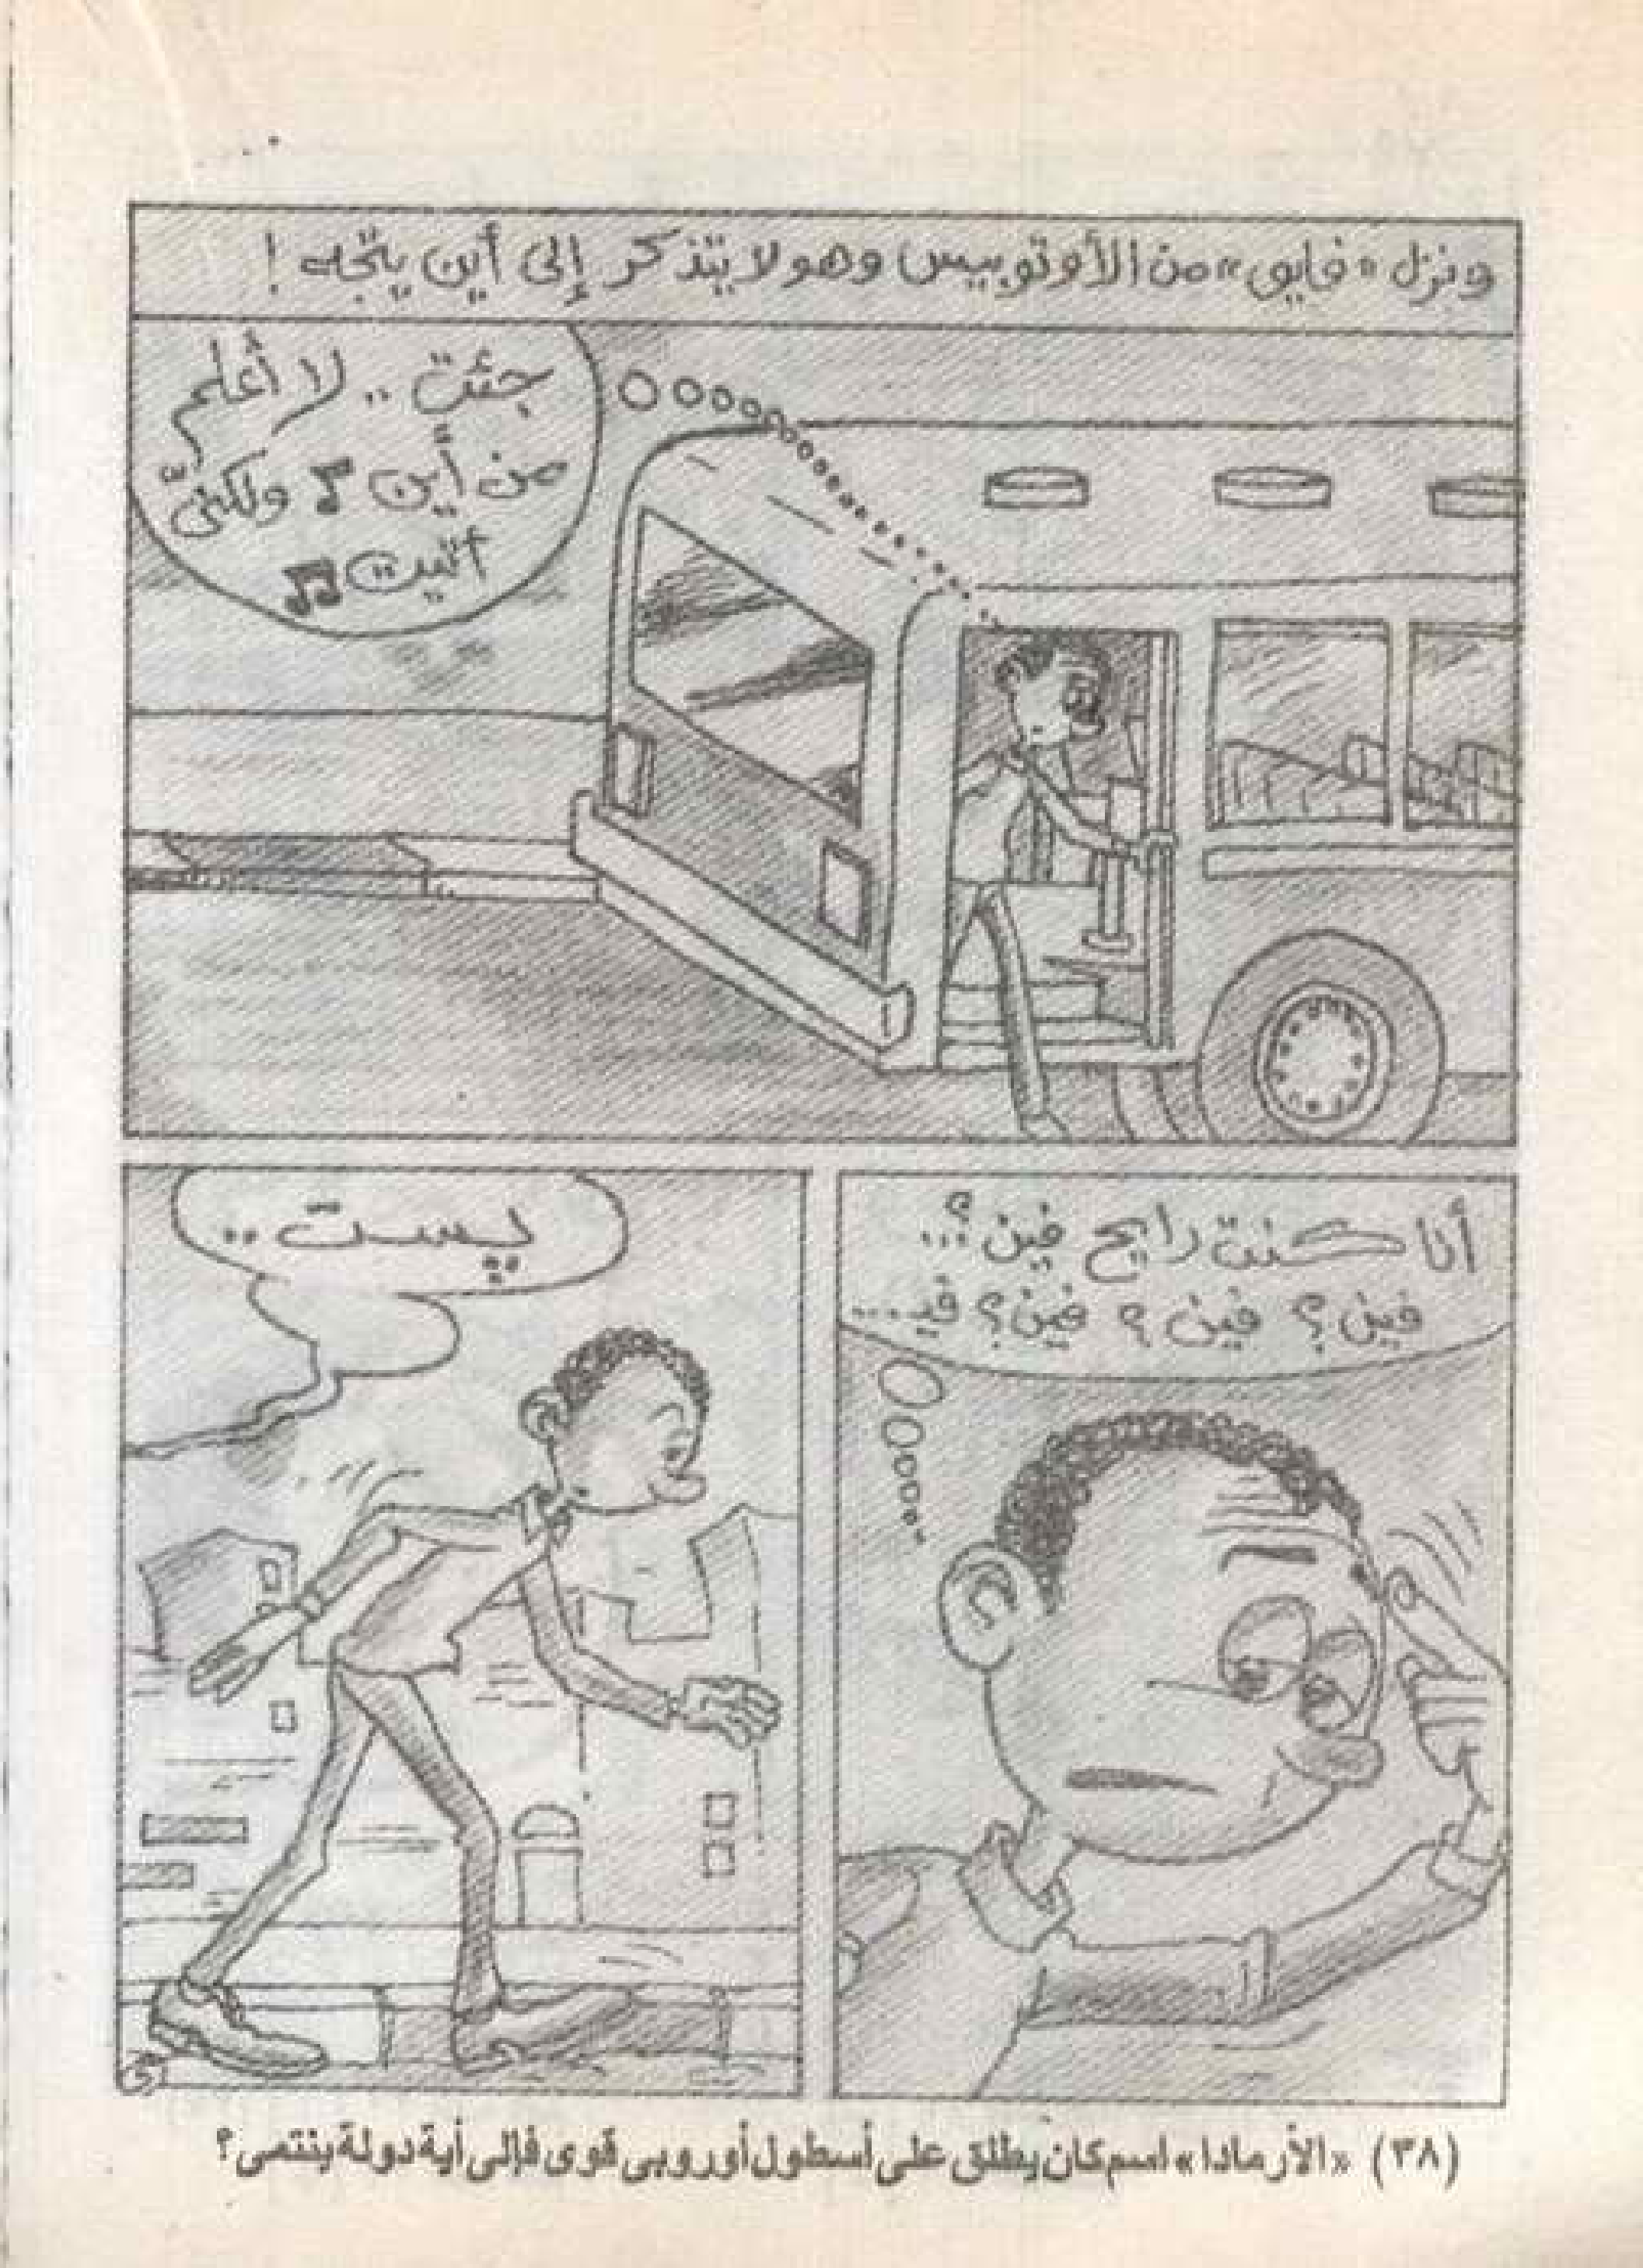 ونزل «فايق» من الأوتوبيس وهو لا يتذكر إلى أين يتجه !
جئت .. لا أعلم
من أين ♪ ولكنّى
أتيت ♫
أنا كنت رايح فين ؟...
فين ؟ فين ؟ فين ؟ في...
پست ..
(٣٨) «الأرمادا» اسم كان يطلق على أسطول أوروبى قوى فإلى أية دولة ينتمى ؟